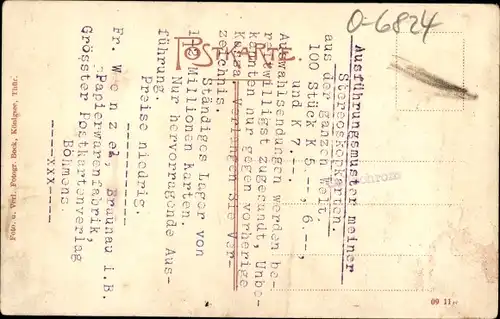 O-6824
Postkarte.
Ausführungsmuster meiner
Stereoskopkarten.
aus der ganzen Welt.
100 Stück K 5.--, 6.--,
und K 7.--.
Auswahlsendungen werden be-
reitwilligst zugesandt, Unbe-
kannten nur gegen vorherige
Kassa. Verlangen Sie Ver-
zeichnis.
Ständiges Lager von
1½ Millionen Karten.
Nur hervorragende Aus-
führung.
Preise niedrig.
Fr. W e n z e l Braunau i.B.
Papierwarenfabrik,
Grösster Postkartenverlag
Böhmens.
----xxx----
Foto. u. Verl. Fotogr. Bock, Königsee, Thür.
09 11